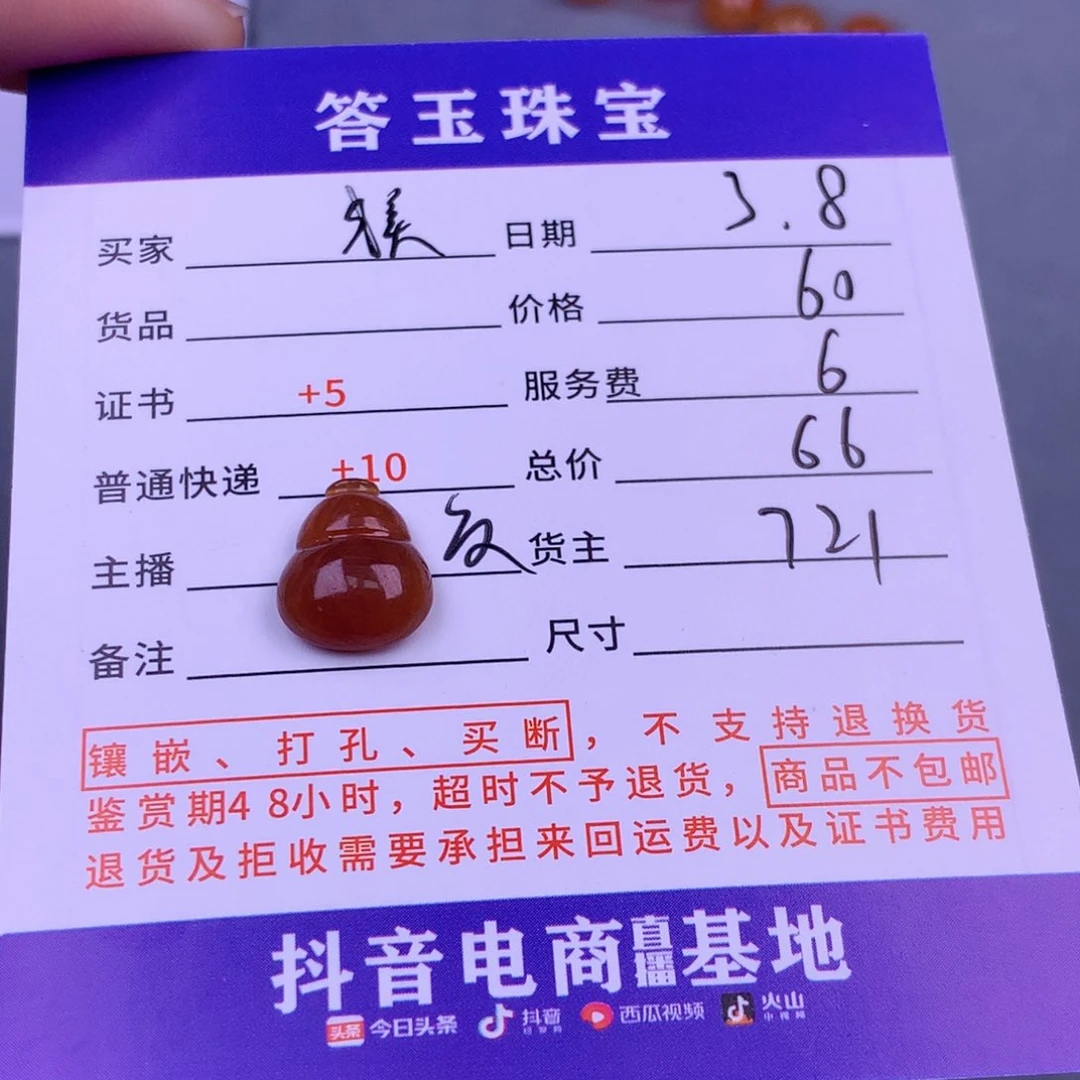 答玉珠宝
买家 日期 3.8
货品 价格 60
证书 +5 服务费 6
普通快递 +10 总价 66
主播 货主 721
备注 尺寸
镶嵌、打孔、买断，不支持退换货
鉴赏期48小时，超时不予退货，商品不包邮
退货及拒收需要承担来回运费以及证书费用
抖音电商直播基地
头条 今日头条 抖音 西瓜视频 火山